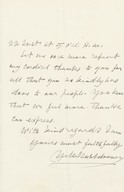 Let me once more repeat
my cordial thanks to you for
all that you so kindly did
done to our people. You know
that we feel more thankful
can express.
With kind regards I am
Yours most faithfully